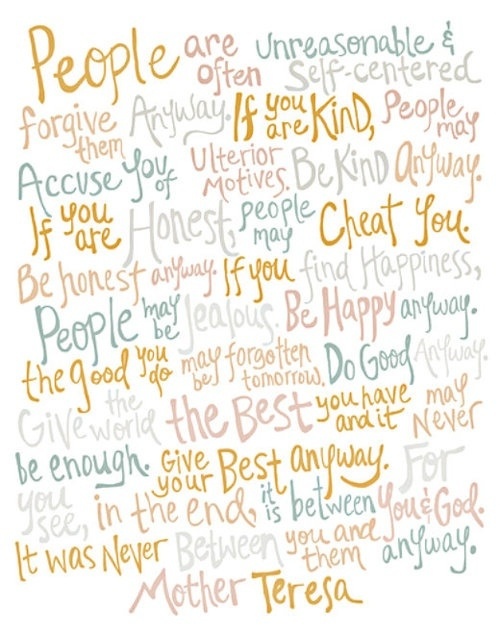 People are often unreasonable & self-centered
forgive them Anyway. If you are KinD, People may
Accuse You of Ulterior Motives. Be KinD Anyway.
If you are Honest, people may Cheat You.
Be honest anyway. If you find Happiness,
People may be Jealous. Be Happy anyway.
the good you do may be forgotten tomorrow. Do Good Anyway.
Give the world the Best you have and it may Never
be enough. Give your Best anyway. For
you see, in the end, it is between You & God.
It was Never Between you and them anyway.
Mother Teresa